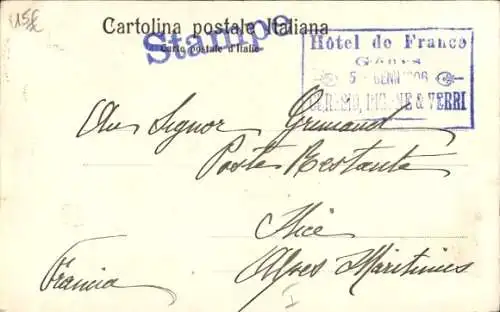 U5£
Cartolina postale Italiana
Carte postale d'Italie
Stampe
Hôtel de France
Gênes
5 GENN 1906
& VERRI
Signor Grimaud
Poste Restante
Nice
Francia
Alpes Maritimes
I